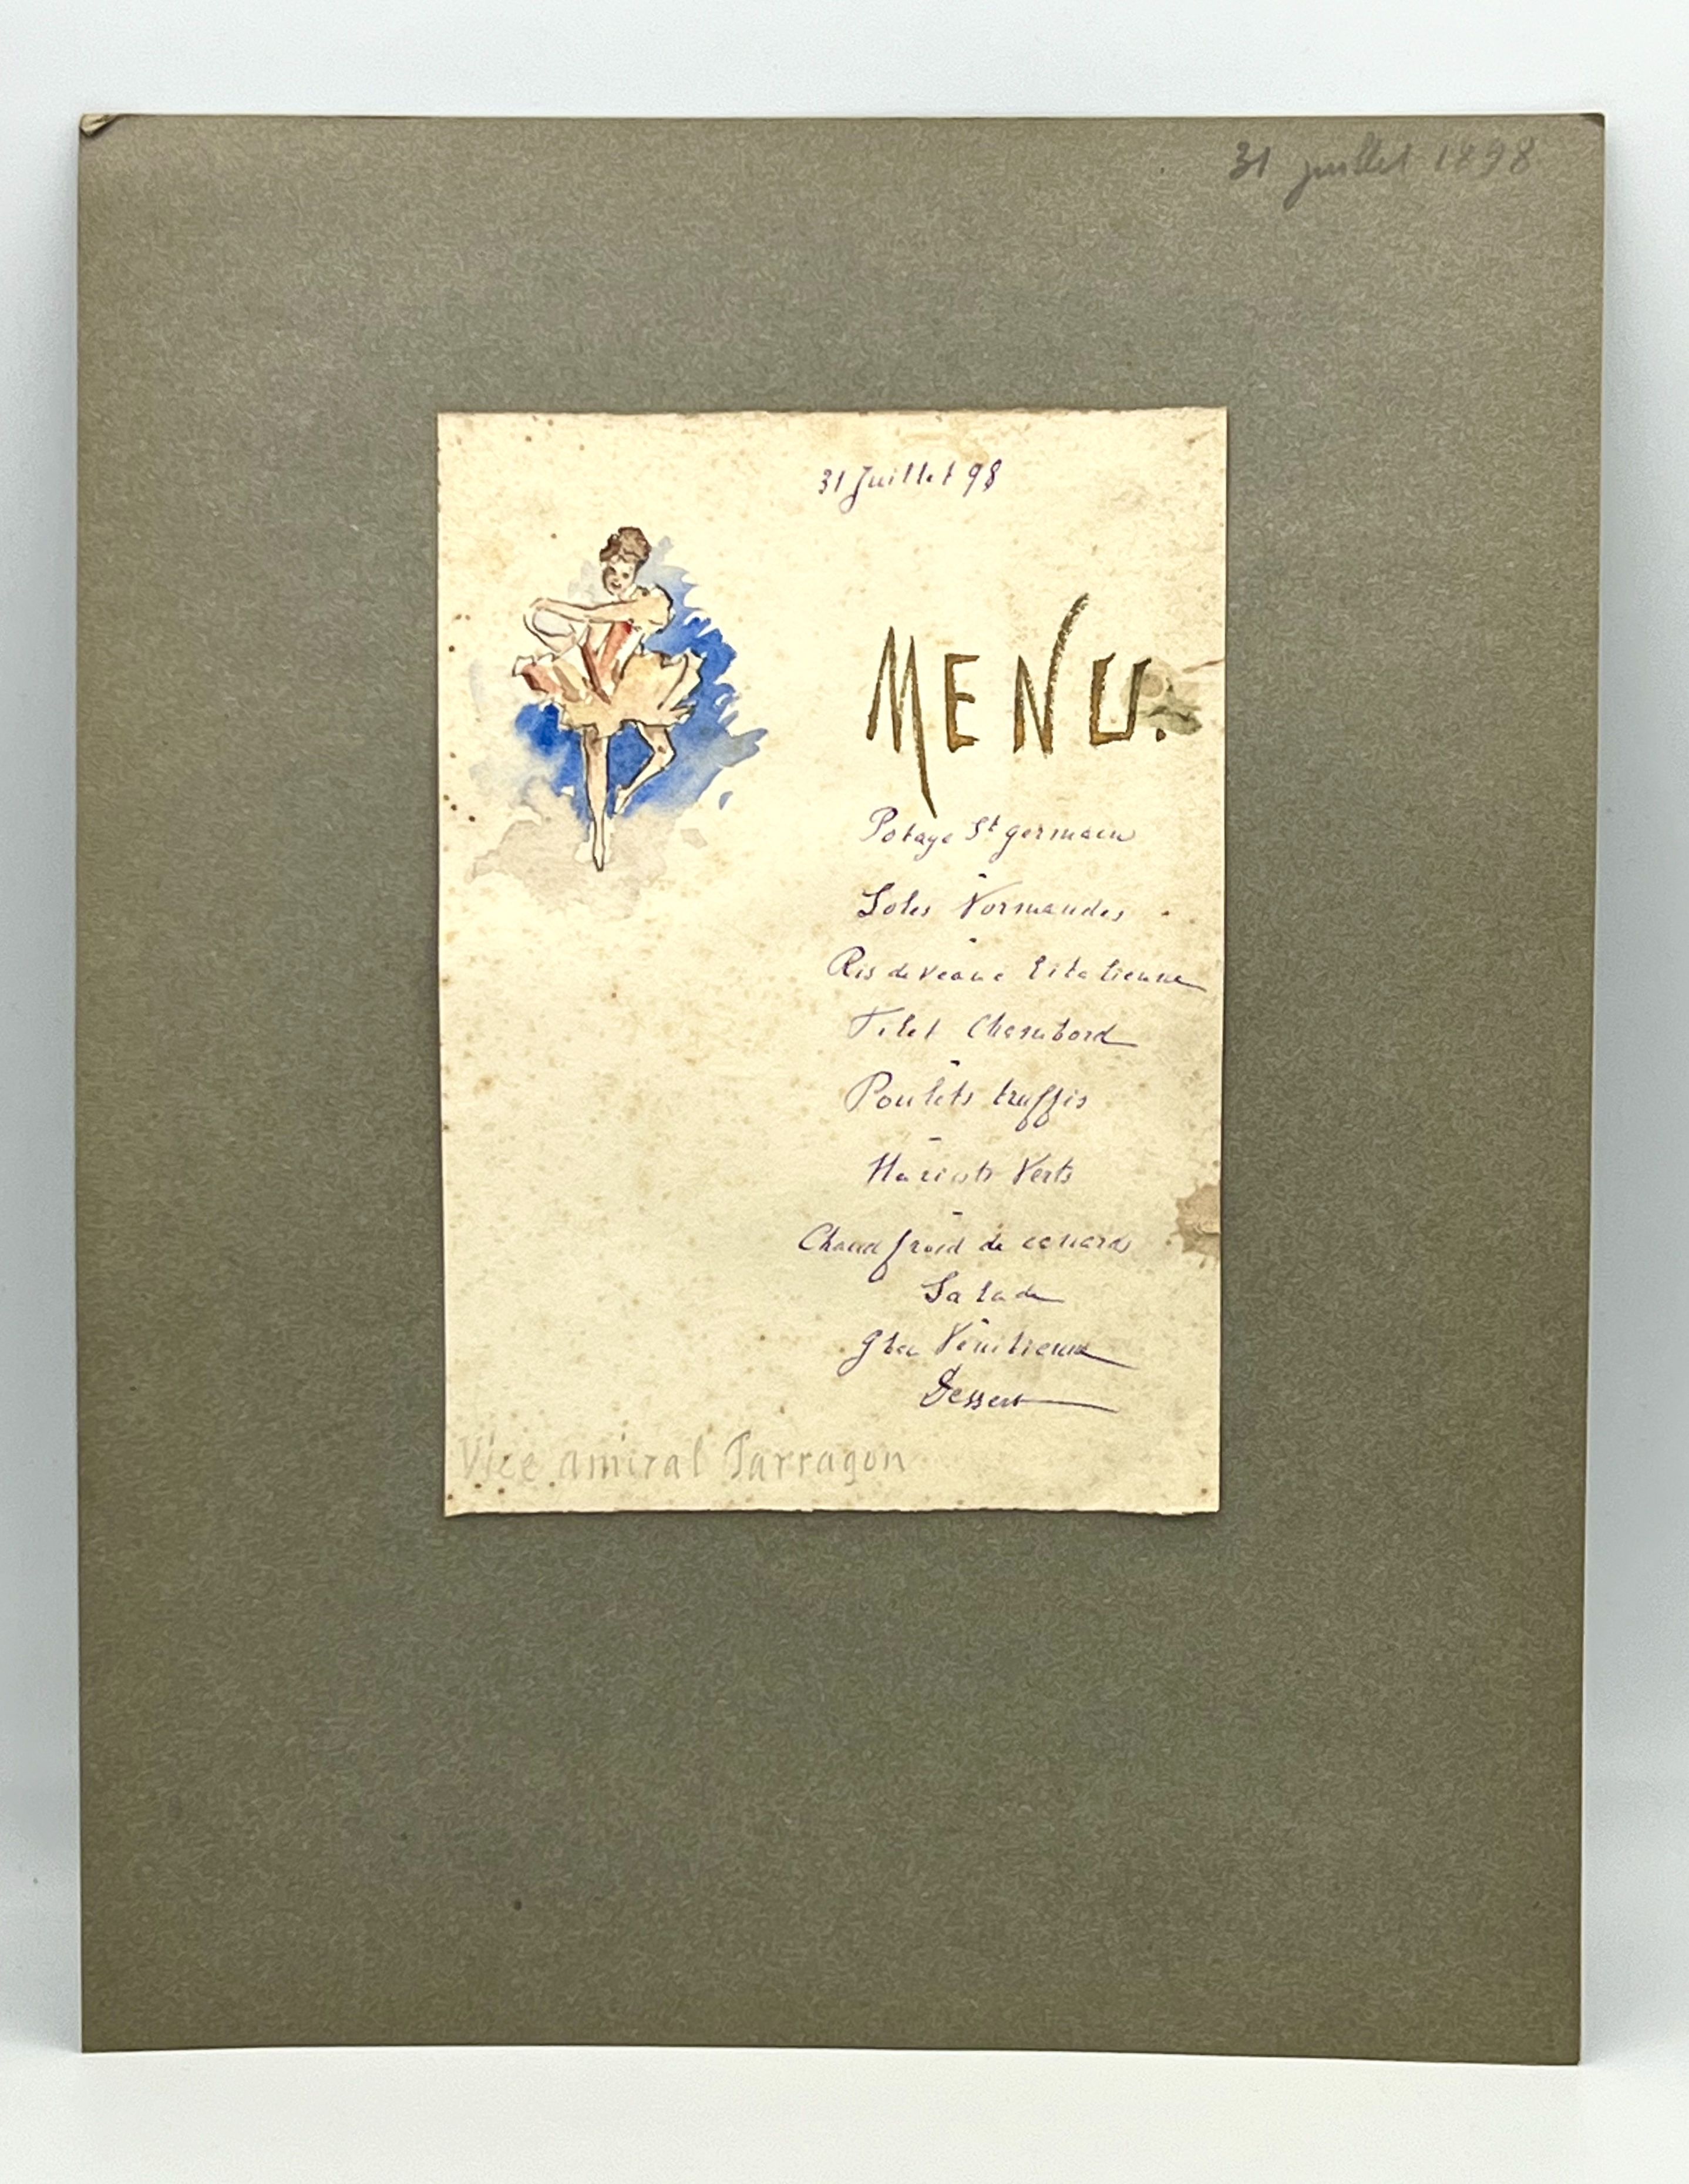 31 juillet 1898
31 Juillet 98
MENU.
Potage St germain
Soles Normandes
Ris de veau à l'italienne
Filet Chambord
Poulets truffés
Haricots Verts
Chaud froid de canards
Salade
Glace Vénitienne
Dessert
Vice amiral Tarragon